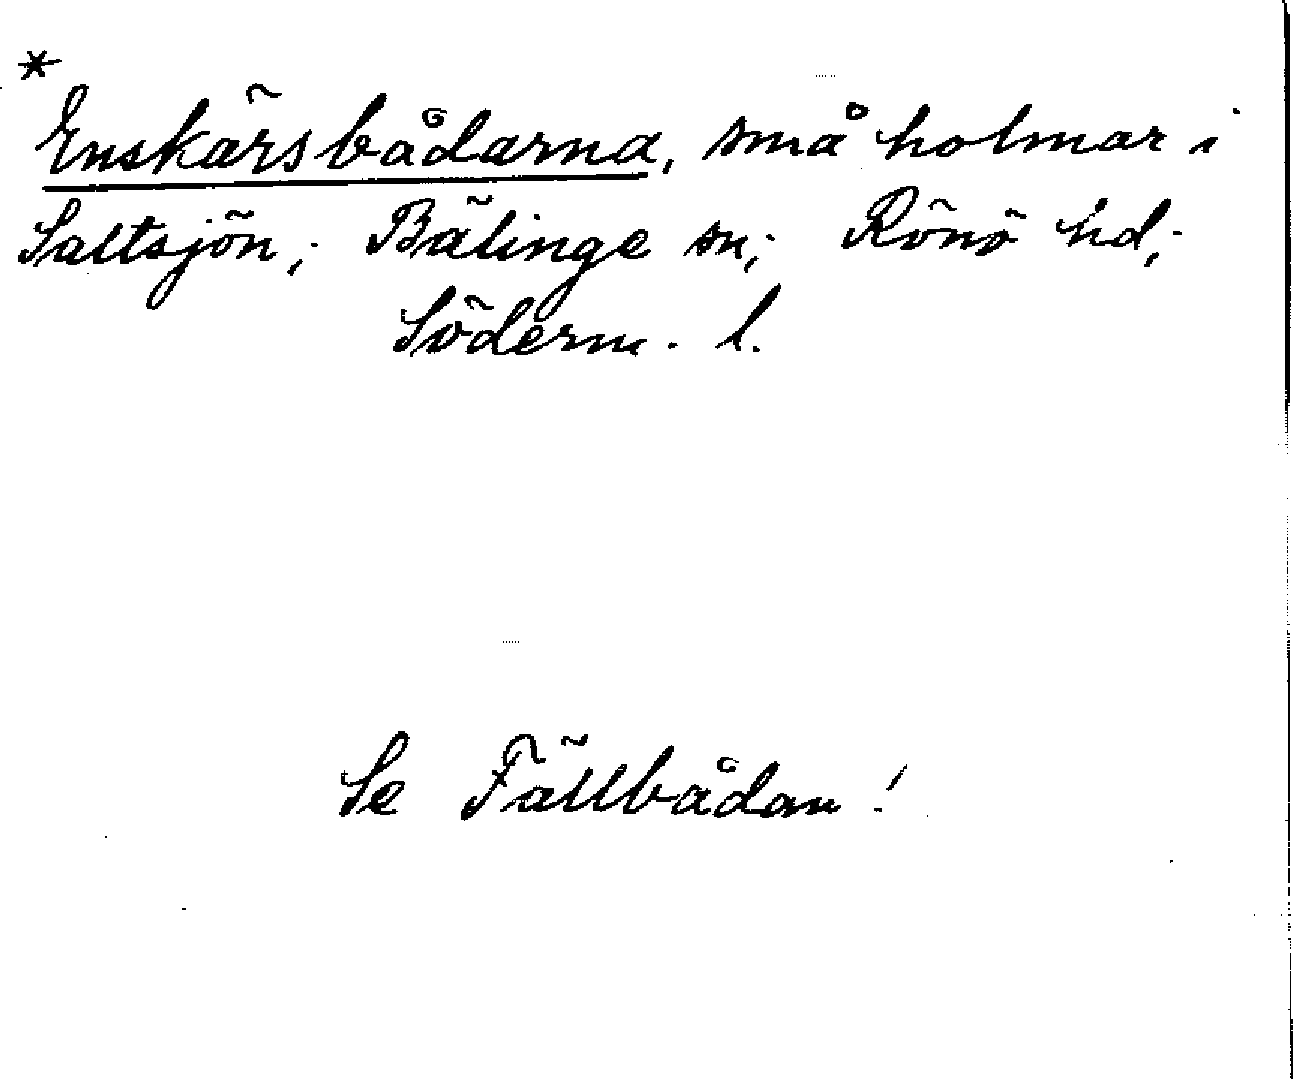 *
Enskärsbådarna, små holmar i
Saltsjön; Bälinge sn; Rönö hd;
Söderm. l.
Se Fällbådan!